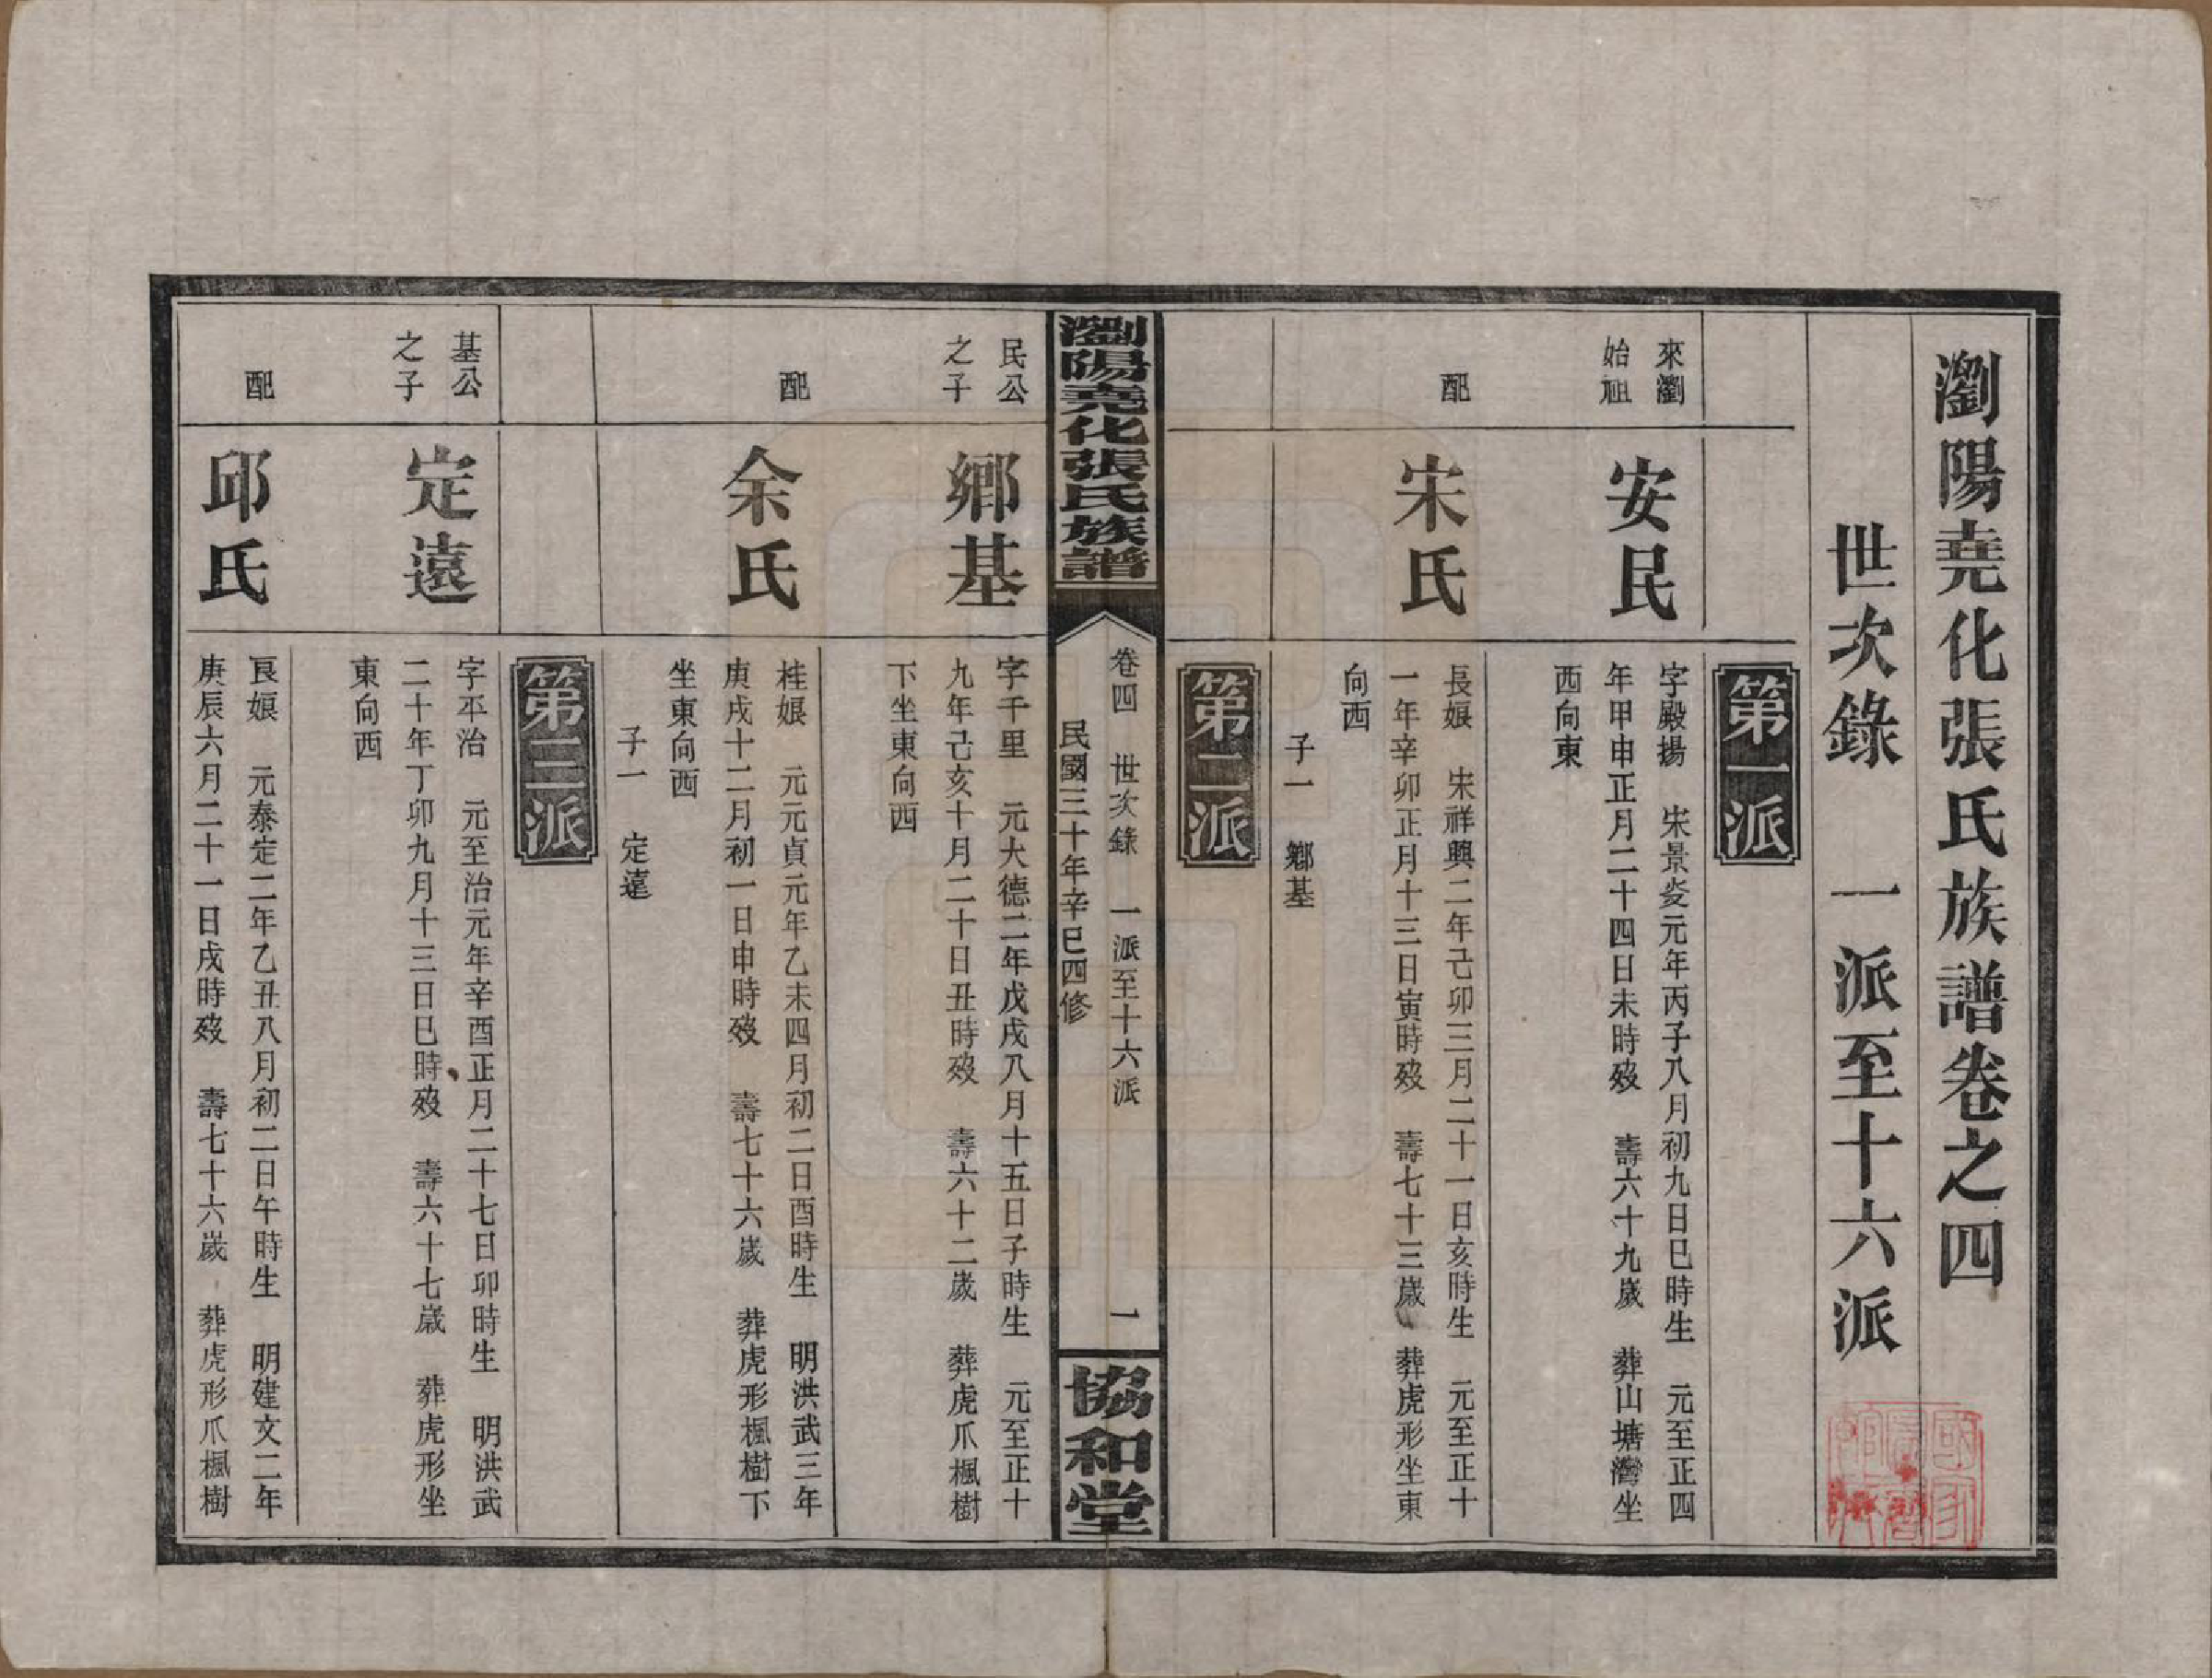 瀏陽堯化張氏族譜卷之四
世次錄　一派至十六派
第一派
來瀏
始祖
安民
字殿揚　宋景炎元年丙子八月初九日巳時生　元至正四
年甲申正月二十四日未時歿　壽六十九歲　葬山塘灣坐
西向東
配
宋氏
長娘　宋祥興二年己卯三月二十一日亥時生　元至正十
一年辛卯正月十三日寅時歿　壽七十三歲　葬虎形坐東
向西
子一　鄉基
第二派
瀏陽堯化張氏族譜
卷四　世次錄　一派至十六派　一
民國三十年辛巳四修
協和堂
民公
之子
鄉基
字千里　元大德二年戊戌八月十五日子時生　元至正十
九年己亥十月二十日丑時歿　壽六十二歲　葬虎爪楓樹
下坐東向西
配
余氏
桂娘　元元貞元年乙未四月初二日酉時生　明洪武三年
庚戌十二月初一日申時歿　壽七十六歲　葬虎形楓樹下
坐東向西
子一　定遠
第三派
基公
之子
定遠
字平治　元至治元年辛酉正月二十七日卯時生　明洪武
二十年丁卯九月十三日巳時歿　壽六十七歲　葬虎形坐
東向西
配
邱氏
良娘　元泰定二年乙丑八月初二日午時生　明建文二年
庚辰六月二十一日戌時歿　壽七十六歲　葬虎形爪楓樹